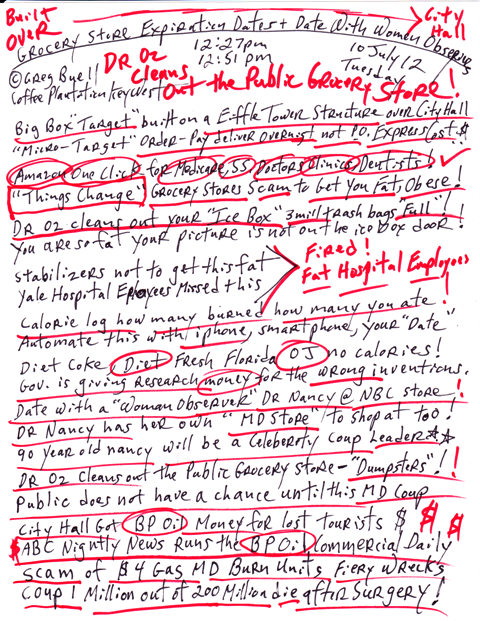 Built over City Hall
Grocery Store Expiration Dates + Date With Women Observers
12:27pm
12:51pm
10 July 12
Tuesday
©Greg Buell
Coffee Plantation Key West
DR Oz
Cleans
Out the Public Grocery Store!
Big Box "Target" built on a Effle Tower Structure over City Hall
"Micro-Target" Order-Pay deliver overnist not P.O. Express Cost $!
Amazon One Click for Medicare, SS, Doctors Clinics, Dentists!
"Things Change" Grocery Stores Scam to Get you Fat, Obese!
DR Oz cleans out your "Ice Box" 3mill trash bags "Full"!!
You are so fat your picture is not on the ice box door!
stabilizers not to get this fat
Yale Hospital Employees Missed this
Fired!
Fat Hospital Employees
Calorie log how many burned how many you ate!
Automate this with iphone, smartphone, your "Date"
Diet Coke, Diet Fresh Florida OJ no calories!
Gov. is giving research money for the wrong inventions.
Date with a "Woman Observer" Dr Nancy @ NBC store!
DR Nancy has her own "MD Store" to shop at too!
90 year old nancy will be a Celeberoty Coup Leader
DR Oz Cleans out the Public Grocery Store - "Dumpsters"!!
Public does not have a chance until this MD Coup
City Hall Got BP Oil Money for lost tourists $ $ $
$ABC Nightly News Runs the BP Oil Commercial Daily
Scam of $4 Gas MD Burn Units, Fiery Wrecks
Coup 1 Million out of 200 Million die after Surgery!